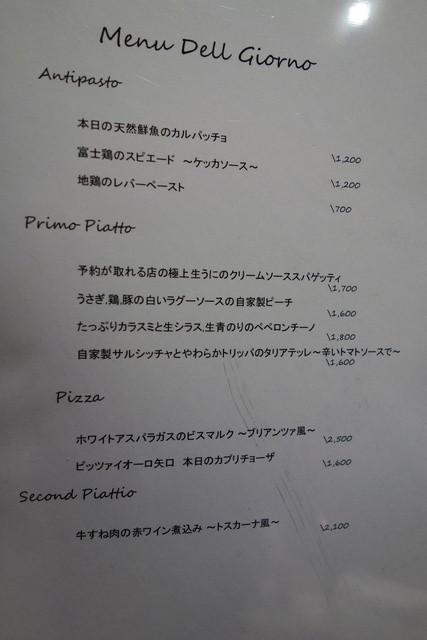 Menu Dell Giorno
Antipasto
本日の天然鮮魚のカルパッチョ
\1,200
富士鶏のスピエード ～ケッカソース～
\1,200
地鶏のレバーペースト
\700
Primo Piatto
予約が取れる店の極上生うにのクリームソーススパゲッティ
\1,700
うさぎ,鶏,豚の白いラグーソースの自家製ピーチ
\1,600
たっぷりカラスミと生シラス,生青のりのペペロンチーノ
\1,800
自家製サルシッチャとやわらかトリッパのタリアテッレ～辛いトマトソースで～
\1,600
Pizza
ホワイトアスパラガスのビスマルク ～ブリアンツァ風～
\2,500
ピッツァイオーロ矢口 本日のカプリチョーザ
\1,600
Second Piattio
牛すね肉の赤ワイン煮込み ～トスカーナ風～
\2,100